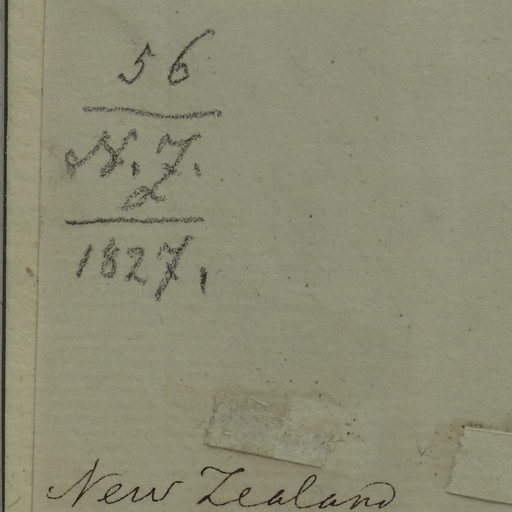 56
N.Z.
1827.
New Zealand